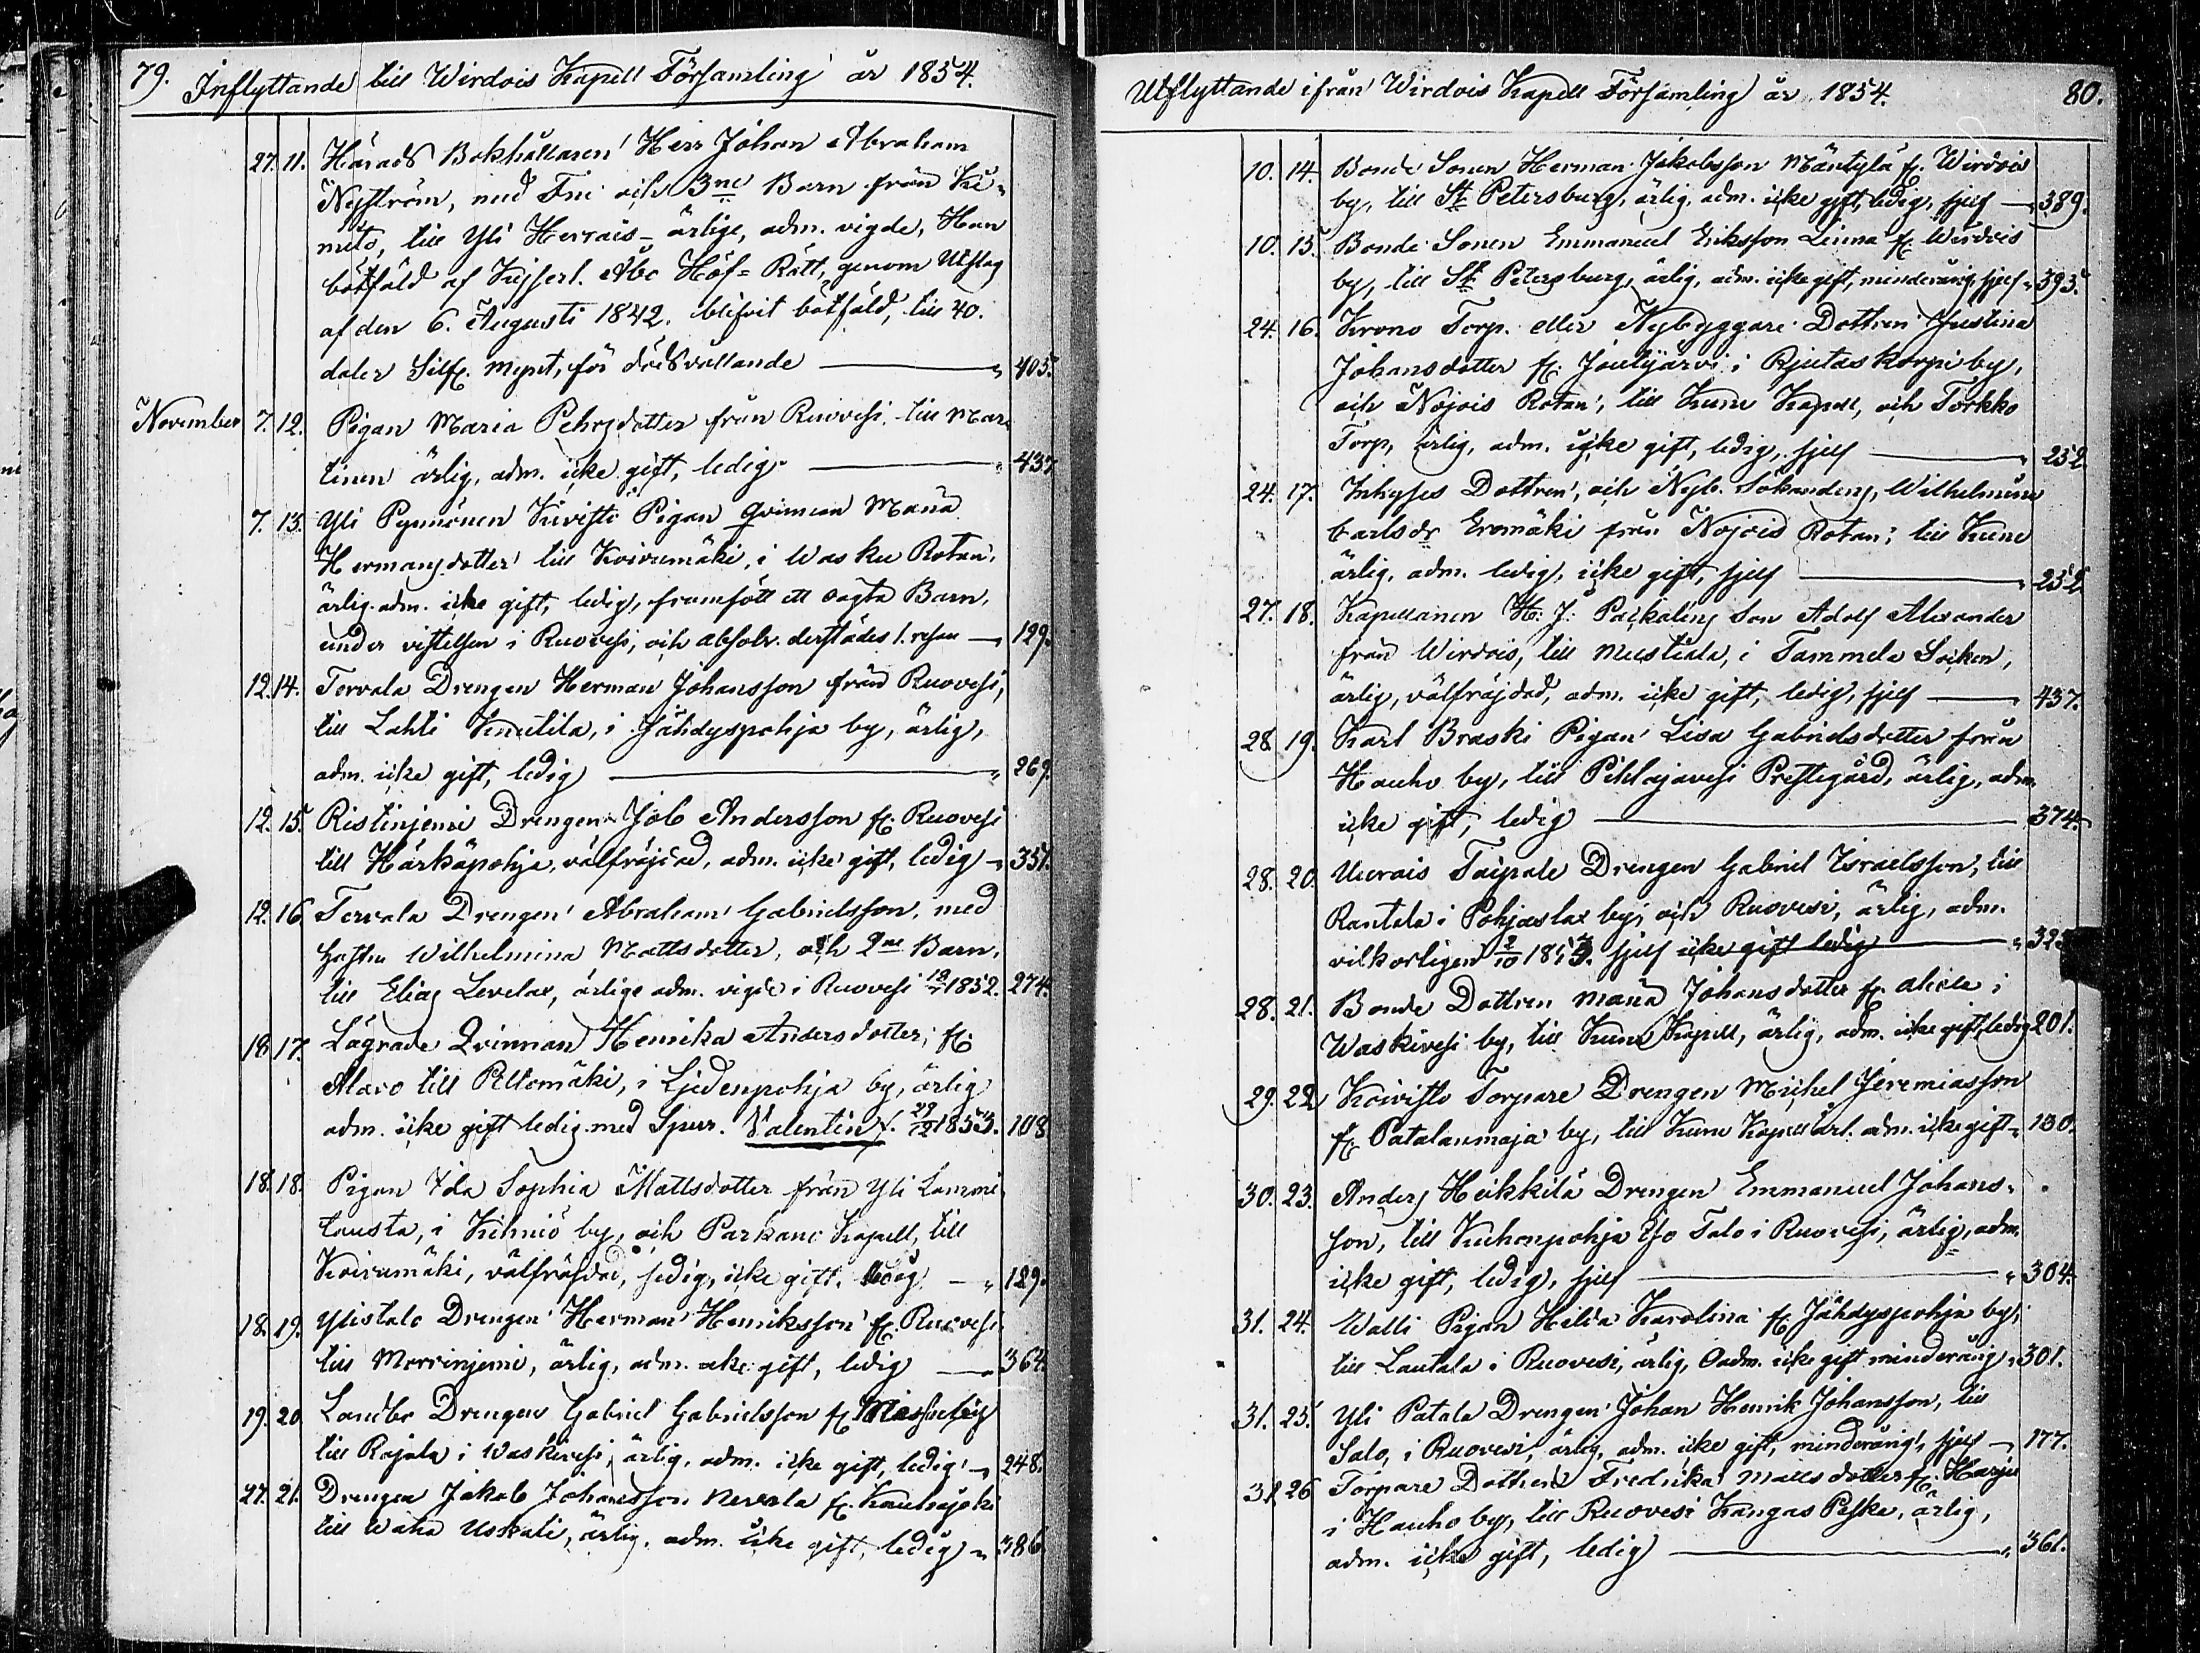 79. Inflyttande till Wirdois Kapell Församling år 1854.
27. 11. Härads Bokhållaren Herr Johan Abraham
Nyström, med Fru och 3ne Barn från
till Yli Herrais - ärlige, adm. vigde, Han
bötfäld af Kejserl. Åbo Hof-Rätt, genom Utslag
af den 6. Augusti 1842. blifvit bötfäld, till 40.
daler Silfr. mynt, för dödsvållande — " 405.
November 7. 12. Pigan Maria Pehrsdotter från Ruovesi till Mar-
tinen ärlig, adm. icke gift, ledig — " 437
7. 13. Yli Pynnönen Kivistö Pigan Qvinnan Maria
Hermansdotter till Koivumäki, i Wasku Rotan,
ärlig adm. icke gift, ledig, framfött ett oägta Barn,
under vistelsen i Ruovesi, och absolv. derstädes 1. resan — " 129.
12. 14. Tervala Drengen Herman Johansson från Ruovesi,
till Lahti Knutila, i Jähdyspohja by, ärlig,
adm. icke gift, ledig — " 269.
12. 15. Ristinjemi Drengen Job Andersson fr. Ruovesi
till Härköpohja, välfräjdad, adm. icke gift, ledig — " 351.
12. 16. Tervala Drengen Abraham Gabrielsson, med
Hustru Wilhelmina Mattsdotter, och 2ne Barn,
till Elias Levelax, ärlige adm. vigde i Ruovesi 1852. 274.
18. 17. Lägrade Qvinnan Henrika Andersdotter, fr.
Alavo till Peltomäki, i Ljedenpohja by, ärlig
adm. icke gift ledig med Spur. Valentin f. 29/12 1853. 108
18. 18. Pigan Ida Sophia Mattsdotter från Yli Lammi
tausta, i Kihniö by, och Parkano Kapell, till
Koivumäki, välfräjdad, ledig, icke gift. — " 129.
18. 19. Ylistalo Drengen Herman Henriksson fr. Ruovesi
till Morrinjemi, ärlig, adm. icke gift, ledig — " 364.
19. 20. Landbo Drengen Gabriel Gabrielsson fr.
till Rajala i Waskivesi, ärlig, adm. icke gift, ledig — " 248.
27. 21. Drengen Jakob Johansson Nevala fr. Kauhajoki
till Waha Uskali, ärlig, adm. icke gift, ledig " 386.
Utflyttande ifrån Wirdois Kapell Församling år 1854. 80.
10. 14. Bonde Sonen Herman Jakobsson Mäntylä fr. Wirdois
by, till St. Petersburg, ärlig, adm. icke gift, ledig, sjelf — " 389.
10. 15. Bonde Sonen Emmanuel Eriksson Linna fr. Wirdois
by, till St. Petersburg, ärlig, adm. icke gift, minderårig, sjelf " 393.
24. 16. Krono Torp. eller Nybyggare Dottren Justina
Johansdotter fr. Joutijärvi i Rjutaskorpi by,
och Nojois Rotan, till Kuru Kapell, och Torkko
Torp, ärlig, adm. icke gift, ledig, sjelf — " 252
24. 17. Inhyses Dottren, och Nyb. Sökandens, Wilhelmina
Carlsdr Eromäki från Nojois Rotan, till Kuru
ärlig, adm. ledig, icke gift, sjelf — " 252
27. 18. Kapellanen H. J. Packalens Son Adolf Alexander
från Wirdois, till Mustiala, i Tammela Socken,
ärlig, välfräjdad, adm. icke gift, ledig, sjelf — " 437.
28. 19. Karl Braski Pigan Lisa Gabrielsdotter från
Hauho by, till Pihlajavesi Prestegård, ärlig, adm.
icke gift, ledig — 374.
28. 20. Uurais Taipale Drengen Gabriel Israelsson, till
Rantala i Pohjaslax by, och Ruovesi, ärlig, adm.
vilkorligen 2/10 sjelf icke gift ledig — "
28. 21. Bonde Dottren Maria Johansdotter fr. i
Waskivesi by, till Kuru Kapell, ärlig, adm. icke gift, ledig 201.
29. 22. Koivisto Torpare Drengen Michel Jeremiasson
fr. Patalanmaja by, till Kuru Kapell ärl. adm. icke gift " 130.
30. 23. Anders Heikkilä Drengen Emmanuel Johans-
son, till Kuhonpohja Iso Talo i Ruovesi, ärlig, adm.
icke gift, ledig, sjelf — " 304.
31. 24. Walli Pigan Hilda Karolina fr. Jähdyspohja by,
till Lautala i Ruovesi, ärlig, Oadm. icke gift minderårig " 301.
31. 25. Yli Patala Drengen Johan Henrik Johansson, till
Salo, i Ruovesi, ärlig, adm. icke gift, minderårig, sjelf — 177.
31. 26. Torpare Dottren Fredrika Mattsdotter fr. Harju
i Hauho by, till Ruovesi Kangas Peska, ärlig,
adm. icke gift, ledig — " 361.